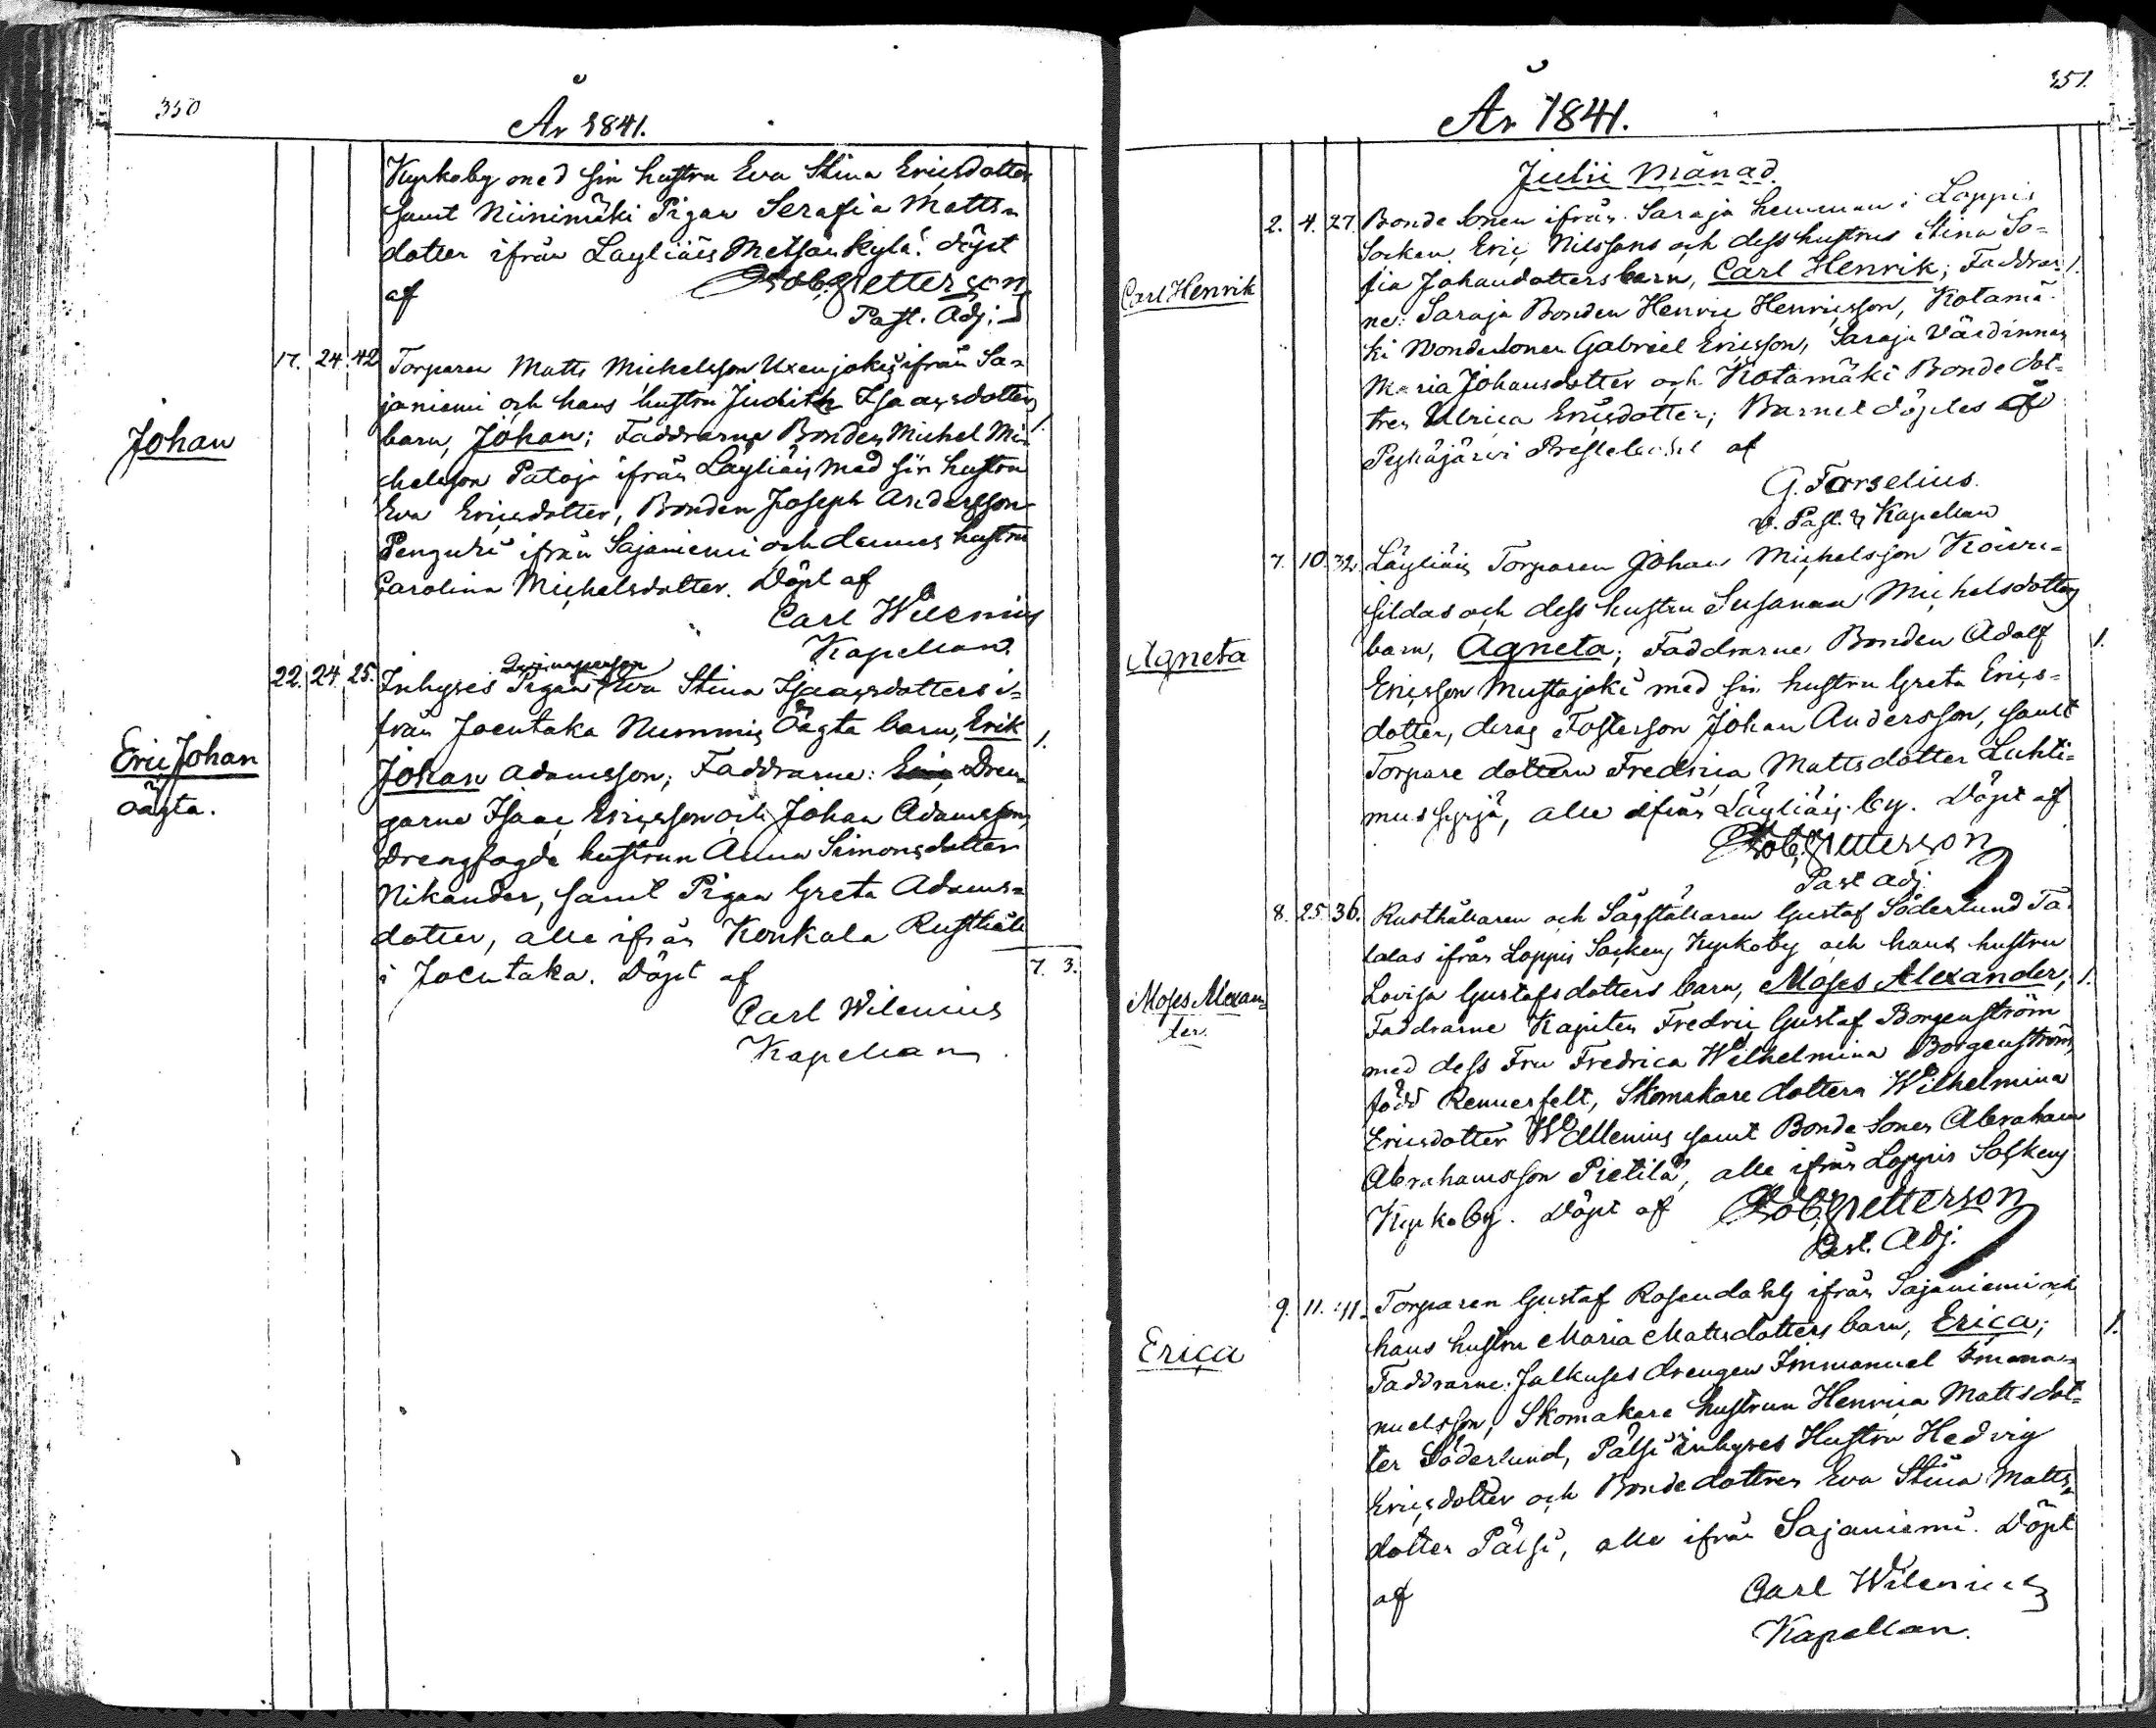 350
År 1841.
Kyrkoby med sin hustru Eva Stina Ericsdotter
samt Niinimäki Pigan Serafia Matts-
dotter ifrån Läyliäis Metsänkylä. Döpt
af Rob. Petterson
Past. Adj.
17. 24. 42. Torparen Matts Michelsson Uxenjokis ifrån Sa-
janiemi och hans hustru Judith Isaacsdotters
Johan
barn, Johan; Faddrarne Bonden Michel Mi- 1.
chelsson Pataja ifrån Läyliäis med sin hustru
Eva Ericsdotter, Bonden Joseph Andersson
Penguri ifrån Sajaniemi och dennes hustru
Carolina Michelsdotter. Döpt af
Carl Wilenius
Kapellan.
Qvinnsperson
22. 24. 25. Inhyses Pigan Eva Stina Isaacsdotters i-
från Joentaka Nummis Oägta barn, Erik 1.
Eric Johan
oägta.
Johan Adamsson; Faddrarne: Dren-
garne Isaac Ericsson och Johan Adamsson,
Drengfogde hustrun Anna Simonsdotter
Nikander, samt Pigan Greta Adams-
dotter, alle ifrån Konkala Rusthåll
i Joentaka. Döpt af 7. 3.
Carl Wilenius
Kapellan
351.
År 1841.
Julii Månad.
2. 4. 27. Bonde Sonen ifrån Saraja hemman i Loppis
Socken Eric Nilssons och dess hustrus Stina So-
Carl Henrik
fia Johansdotters barn, Carl Henrik; Faddrar- 1.
ne: Saraja Bonden Henric Henricsson, Kotamä-
ki Bondesonen Gabriel Ericsson, Saraja Värdinnan
Maria Johansdotter och Kotamäki Bonde dot-
tren Ulrica Ericsdotter; Barnet döptes å
Pyhäjärvi Prestebohl af
G. Forselius.
v. Past. & Kapellan
7. 10. 32. Läyliäis Torparen Johan Michelsson Koivu-
sildas och dess hustru Susanna Michelsdotters
Agneta
barn, Agneta; Faddrarne Bonden Adolf 1.
Ericsson Mustajoki med sin hustru Greta Erics-
dotter, deras Fosterson Johan Andersson, samt
Torpare dottern Fredrica Mattsdotter Luhti-
mussyrjä, alle ifrån Läyliäis by. Döpt af
Rob. Petterson
Past. adj.
8. 25. 36. Rusthållaren och Sågställaren Gustaf Söderlund Ta-
lalas ifrån Loppis Sockens Kyrkoby och hans hustru
Moses Alexan-
der.
Lovisa Gustafsdotters barn, Moses Alexander, 1.
Faddrarne Kapiten Fredric Gustaf Borgenström
med dess Fru Fredrica Wilhelmina Borgenström,
född Rennerfelt, Skomakare dottern Wilhelmina
Ericsdotter Wallenius samt Bonde Sonen Abraham
Abrahamsson Pietilä, alle ifrån Loppis Sockens
Kyrkoby. Döpt af Rob. Petterson
Past. Adj.
9. 11. 41. Torparen Gustaf Rosendahls ifrån Sajaniemi och
Erica
hans hustru Maria Mattsdotters barn, Erica; 1.
Faddrarne: Jalkuses drengen Immanuel Imma-
nuelsson, Skomakare hustrun Henrica Mattsdot-
ter Söderlund, Pälsi Inhyses Hustru Hedvig
Ericsdotter och Bondedottren Eva Stina Matts-
dotter Pälsi, alle ifrån Sajaniemi. Döpt
af Carl Wilenius
Kapellan.